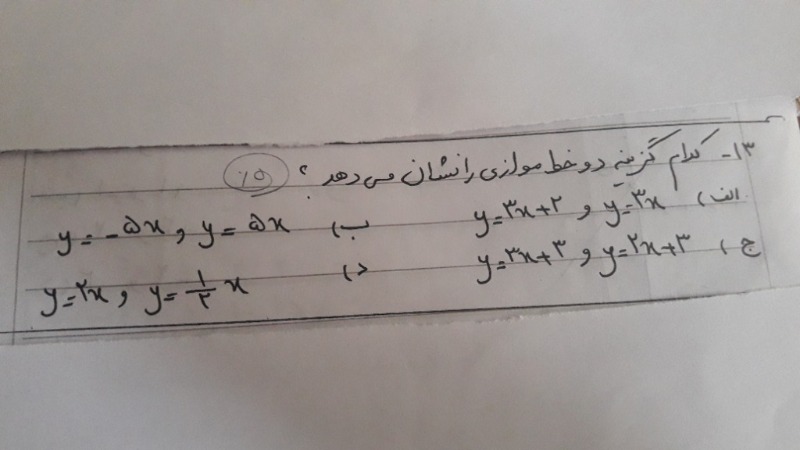 ۱۳- کدام گزینه دو خط موازی را نشان می دهد ؟ (۰/۵)
الف) y=۳x و y=۳x+۲ ب) y=۵x و y=-۵x
ج) y=۲x+۳ و y=۳x+۳ د) y=\frac{۱}{۲}x و y=۲x